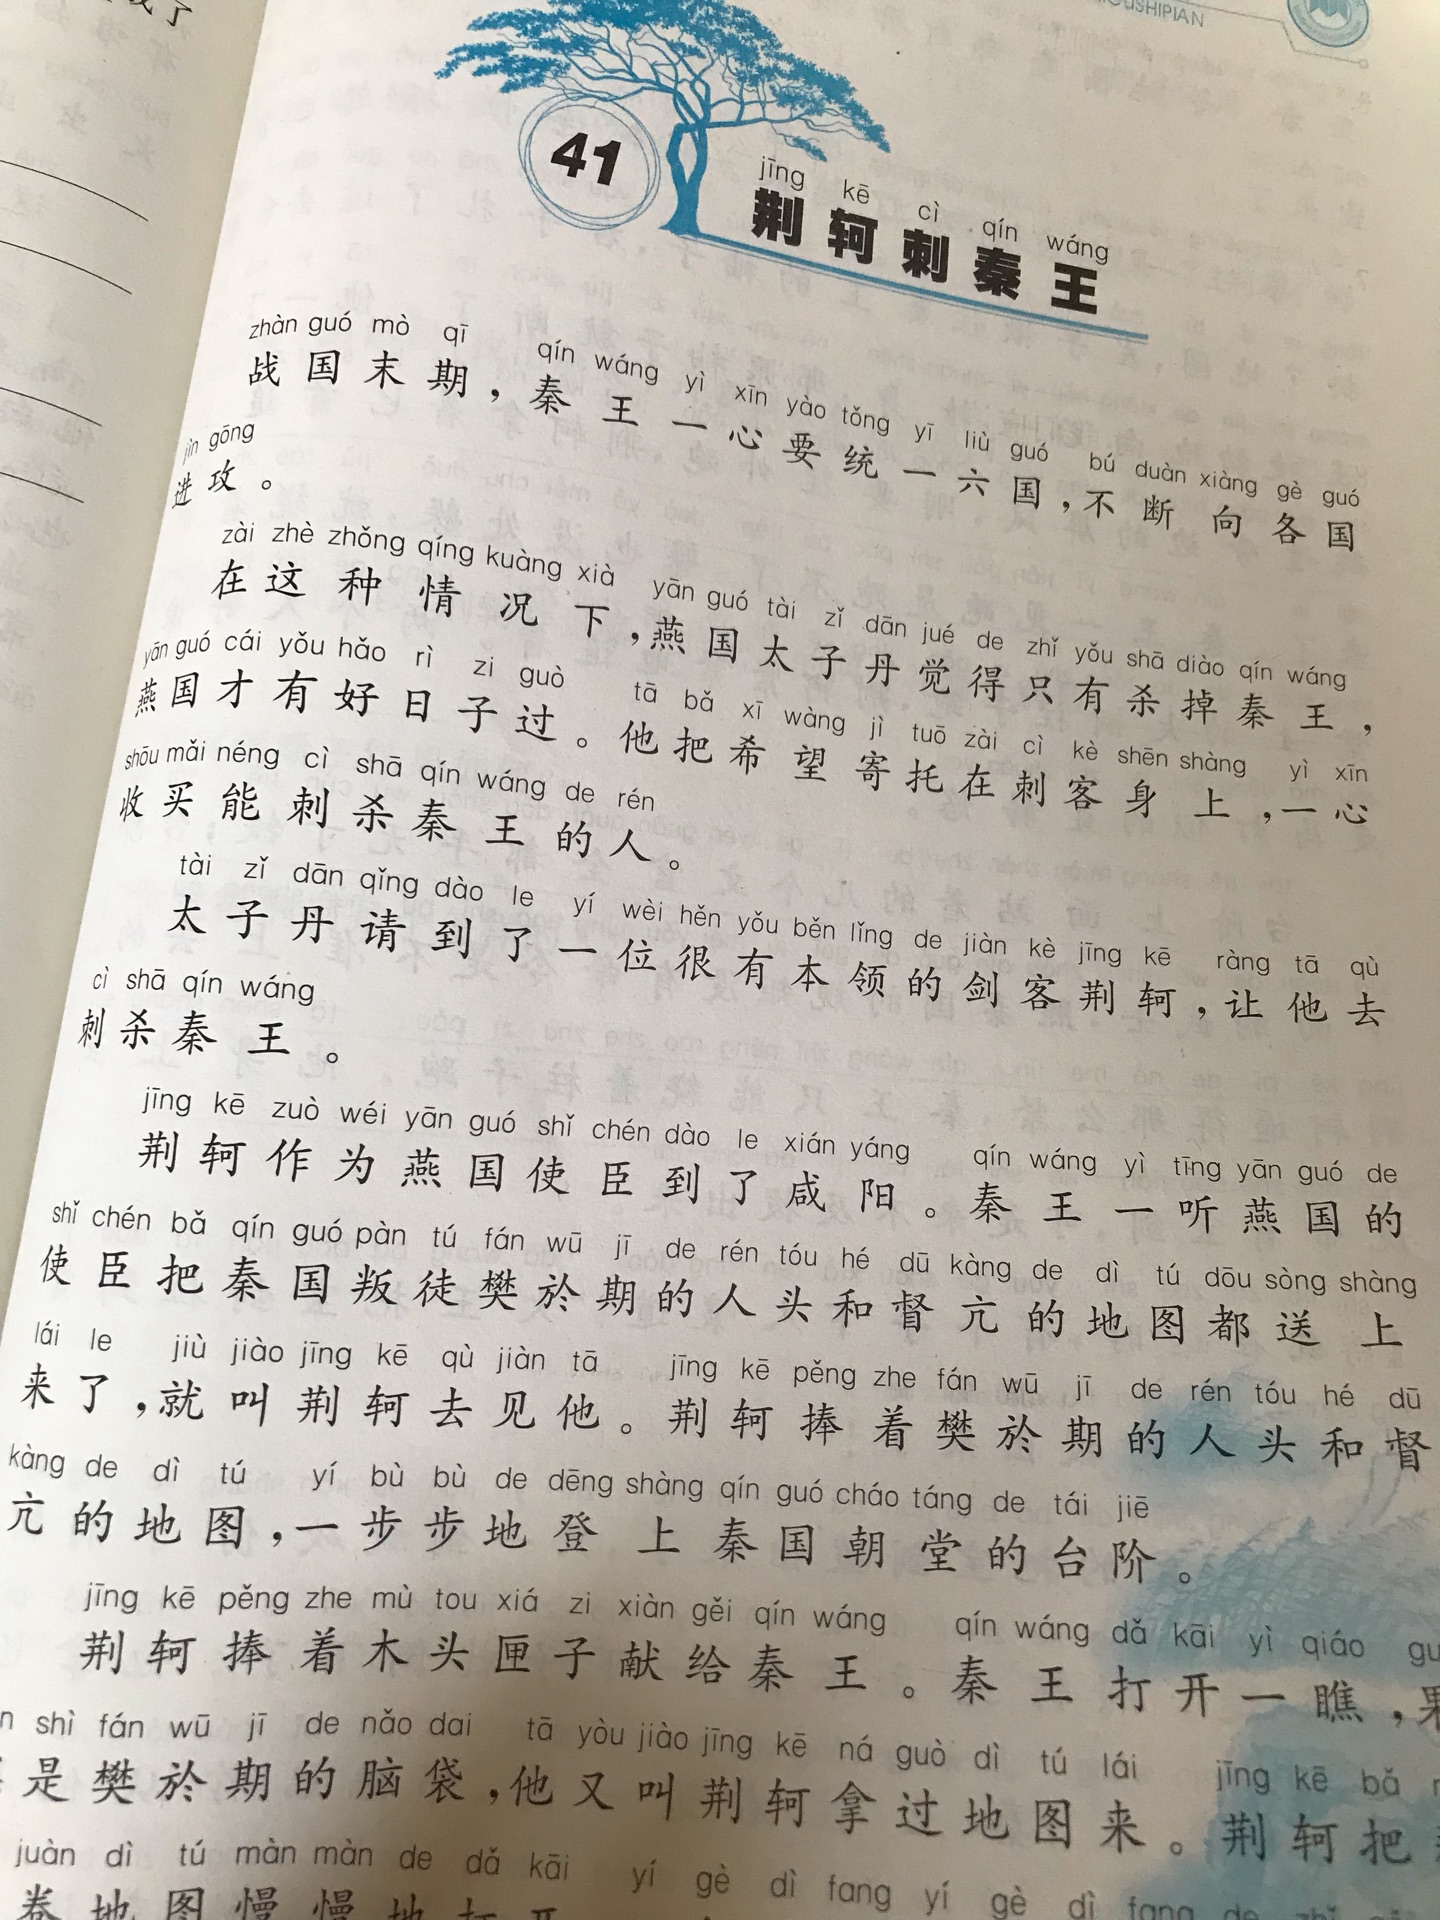 41
jīng kē cì qín wáng
荆轲刺秦王
zhàn guó mò qī qín wáng yì xīn yào tǒng yī liù guó bú duàn xiàng gè guó
战国末期，秦王一心要统一六国，不断向各国
jìn gōng
进攻。
zài zhè zhǒng qíng kuàng xià yān guó tài zǐ dān jué de zhǐ yǒu shā diào qín wáng
在这种情况下，燕国太子丹觉得只有杀掉秦王，
yān guó cái yǒu hǎo rì zi guò tā bǎ xī wàng jì tuō zài cì kè shēn shàng yì xīn
燕国才有好日子过。他把希望寄托在刺客身上，一心
shōu mǎi néng cì shā qín wáng de rén
收买能刺杀秦王的人。
tài zǐ dān qǐng dào le yí wèi hěn yǒu běn lǐng de jiàn kè jīng kē ràng tā qù
太子丹请到了一位很有本领的剑客荆轲，让他去
cì shā qín wáng
刺杀秦王。
jīng kē zuò wéi yān guó shǐ chén dào le xián yáng qín wáng yì tīng yān guó de
荆轲作为燕国使臣到了咸阳。秦王一听燕国的
shǐ chén bǎ qín guó pàn tú fán wū jī de rén tóu hé dū kàng de dì tú dōu sòng shàng
使臣把秦国叛徒樊於期的人头和督亢的地图都送上
lái le jiù jiào jīng kē qù jiàn tā jīng kē pěng zhe fán wū jī de rén tóu hé dū
来了，就叫荆轲去见他。荆轲捧着樊於期的人头和督
kàng de dì tú yí bù bù de dēng shàng qín guó cháo táng de tái jiē
亢的地图，一步步地登上秦国朝堂的台阶。
jīng kē pěng zhe mù tou xiá zi xiàn gěi qín wáng qín wáng dǎ kāi yì qiáo
荆轲捧着木头匣子献给秦王。秦王打开一瞧，果
shì fán wū jī de nǎo dai tā yòu jiào jīng kē ná guò dì tú lái jīng kē bǎ
是樊於期的脑袋，他又叫荆轲拿过地图来。荆轲把
juàn dì tú màn màn de dǎ kāi yí gè dì fang yí gè dì fang de
卷地图慢慢地打开